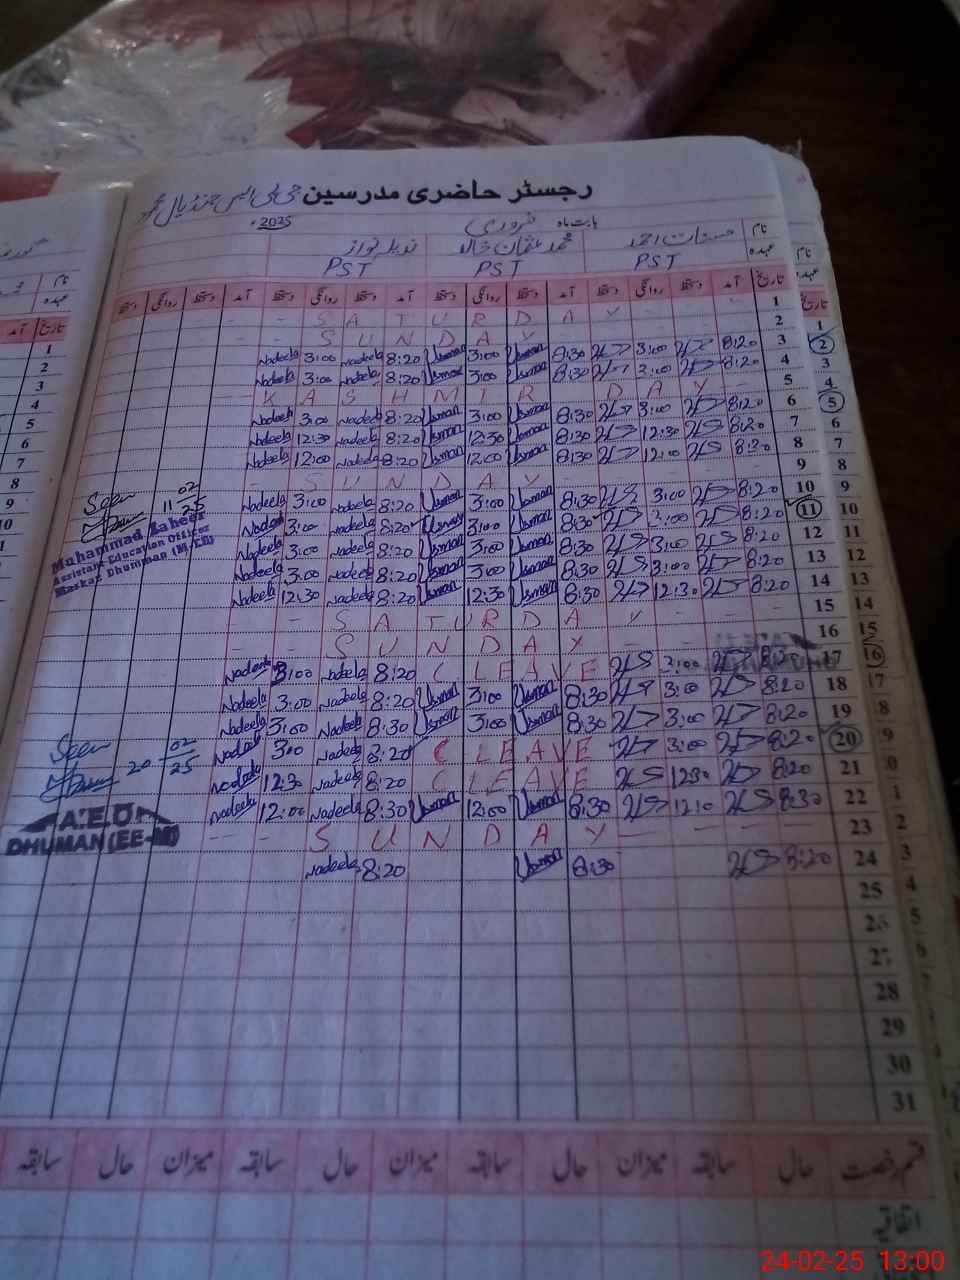 رجسٹر حاضری مدرسین
بابت ماہ فروری 2025
نام حسنات احمد محمد عثمان خالد نوید نواز
عہدہ PST PST PST
تاریخ آمد دستخط روانگی دستخط آمد دستخط روانگی دستخط آمد دستخط روانگی دستخط
1 SATURDAY
2 SUNDAY
3 8:20 3:00 8:30 Usman 3:00 Usman 8:20 Nadeela 3:00 Nadeela
4 8:20 3:00 8:30 Usman 3:00 Usman 8:20 Nadeela 3:00 Nadeela
5 KASHMIR DAY
6 8:20 3:00 8:30 Usman 3:00 Usman 8:20 Nadeela 3:00 Nadeela
7 8:20 12:30 8:30 Usman 12:30 Usman 8:20 Nadeela 12:30 Nadeela
8 8:20 12:00 8:30 Usman 12:00 Usman 8:20 Nadeela 12:00 Nadeela
9 SUNDAY
10 8:20 3:00 8:30 Usman 3:00 Usman 8:20 Nadeela 3:00 Nadeela
11 8:20 3:00 8:30 Usman 3:00 Usman 8:20 Nadeela 3:00 Nadeela
12 8:20 3:00 8:30 Usman 3:00 Usman 8:20 Nadeela 3:00 Nadeela
13 8:20 3:00 8:30 Usman 3:00 Usman 8:20 Nadeela 3:00 Nadeela
14 8:20 12:30 8:30 Usman 12:30 Usman 8:20 Nadeela 12:30 Nadeela
15 SATURDAY
16 SUNDAY
17 8:20 3:00 C LEAVE 8:20 Nadeela 3:00 Nadeela
18 8:20 3:00 8:30 Usman 3:00 Usman 8:20 Nadeela 3:00 Nadeela
19 8:20 3:00 8:30 Usman 3:00 Usman 8:30 Nadeela 3:00 Nadeela
20 8:20 3:00 C LEAVE 8:20 Nadeela 3:00 Nadeela
21 8:20 12:30 C LEAVE 8:20 Nadeela 12:30 Nadeela
22 8:30 12:10 8:30 Usman 12:00 Usman 8:30 Nadeela 12:00 Nadeela
23 SUNDAY
24 8:20 8:30 Usman 8:20 Nadeela
25
26
27
28
29
30
31
Seen
11 02 25
Muhammad Zaheer
Assistant Education Officer
Markaz Dhumman (M-EE)
Seen
20 02 25
A.E.O
DHUMAN (EE-M)
قسم رخصت حال سابقہ میزان حال سابقہ میزان حال سابقہ میزان حال سابقہ
اتفاقیہ
24-02-25 13:00